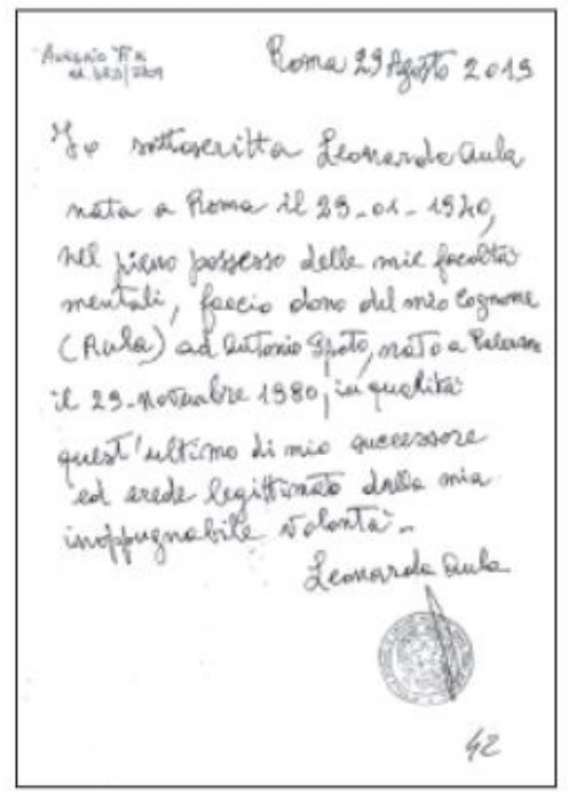 Allegato "A"
Roma 29 Agosto 2019
Io sottoscritta Leonarda Aula
nata a Roma il 29-01-1940,
nel pieno possesso delle mie facoltà
mentali, faccio dono del mio cognome
(Aula) ad Antonio Spoto, nato a Palermo
il 29-novembre 1980, in qualità
quest'ultimo di mio successore
ed erede legittimato dalla mia
inoppugnabile volontà-
Leonarda Aula
42